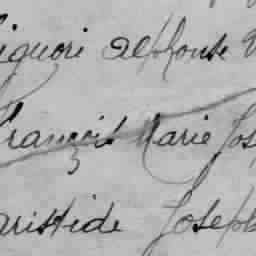 Liguori Alphonse
François Marie Jos
Aristide Joseph